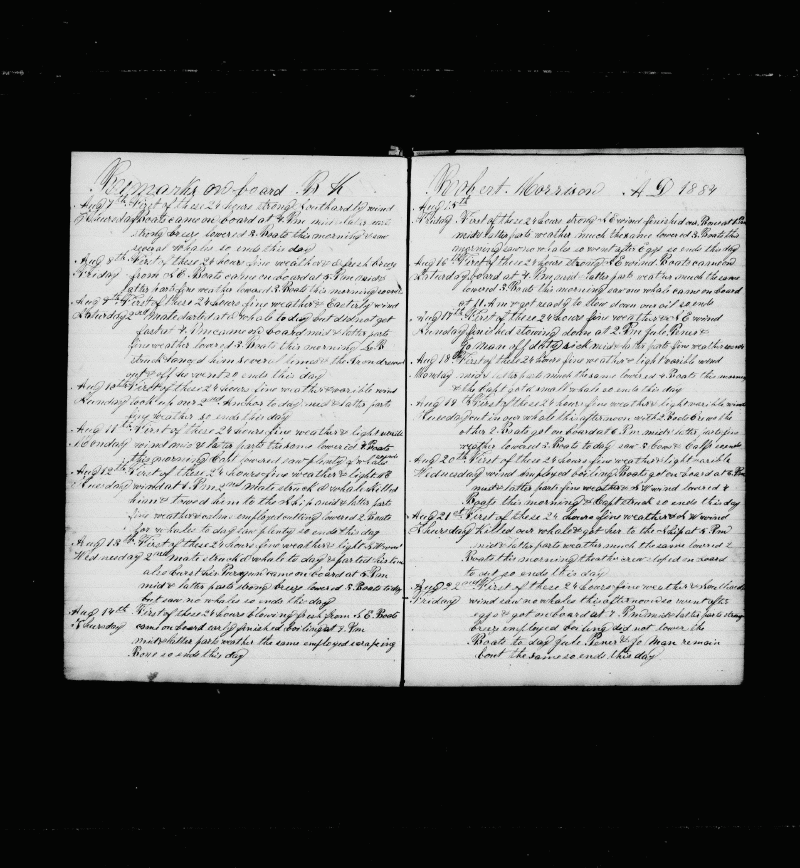 Remarks on board Bk
Aug 7th First of these 24 hours strong Southardly wind
Thursday Boats came on board at 4 Pm mid & latter part
strong breez lowered 3 Boats this morning & saw
several whales so ends this day
Aug 8th First of these 24 hours fine weather & fresh breez
Friday from S.E. Boats came on board at 5 Pm mid &
latter parts fine weather lowered 3 Boats this morning
Aug 9th First of these 24 hours fine weather & Easterly wind
Saturday 2nd Mate darted at a whale to day but did not get
fast at 4 Pm came on board mid & latter parts
fine weather lowered 3 Boats this morning
struck lanced him several times & the Iron drawed
out & off he went so ends this day
Aug 10th First of these 24 hours fine weather & varible wind
Sunday took up our 2nd Anchor to day mid & latter parts
fine weather so ends this day
Aug 11th First of these 24 hours fine weather & light varible
Monday wind mid & latter parts the same lowered 4 Boats
this morning Capt lowered saw plenty of whales
Aug 12th First of these 24 hours fine weather & light S E
Tuesday wind at 4 Pm 2nd Mate struck a whale killed
him & towed him to the Ship mid & latter parts
fine weather & calm employed cutting lowered 2 Boats
for whales to day saw plenty so ends this day
Aug 13th First of these 24 hours fine weather & light wind
Wednesday 2nd mate struck a whale to day & parted his line
also burst his Purs gun came on board at 5 Pm
mid & latter parts strong breez lowered 3 Boats to day
but saw no whales so ends this day
Aug 14th First of these 24 hours blowing fresh from S.E. Boats
Thursday came on board early finished boiling at 7 Pm
mid & latter parts wather the same employed scraping
Bone so ends this day
Robert Morrison A D 1884
Aug 15th
Friday First of these 24 hours strong S.E wind finished our Bone at 1 Pm
mid & latter parts weather much the same lowered 3 Boats this
morning saw no whales so went after Eggs so ends this day
Aug 16th First of these 24 hours strong S.E wind Boats came on
Saturday board at 4 Pm mid & latter parts weather much the same
lowered 3 Boats this morning saw one whale came on board
at 11 Am & got ready to stow down our oil so ends
Aug 17th First of these 24 hours fine weather & S.E wind
Sunday finished stowing down at 2 Pm Jule Piner &
Jo Man off duty sick mid & latter parts fine weather
Aug 18th First of these 24 hours fine weather & light varible wind
Monday mid & latter parts much the same lowered 4 Boats this morning
& the Capt got a small whale so ends this day
Aug 19 First of these 24 hours fine weather & light varible wind
Tuesday cut in our whale this afternoon with 2 Boats Crew the
other 2 Boats got on board at 6 Pm mid & latter parts fine
weather lowered 3 Boats to day saw 2 Cows & Calfs
Aug 20th First of these 24 hours fine weather & light varible
Wednesday wind employed boiling Boats got on board at 6 Pm
mid & latter parts fine weather & S.W wind lowered 4
Boats this morning & Capt struck so ends this day
Aug 21st First of these 24 hours fine weather & S.W wind
Thursday killed our whale & got her to the Ship at 5 Pm
mid & latter parts weather much the same lowered 2
Boats this morning the other crews stoped on board
to cut so ends this day
Aug 22nd First of these 24 hours fine weather & Southardly
Friday wind saw no whales this afternoon so went after
eggs & got on board at 7 Pm mid & latter parts strong
breez employed boiling did not lower the
Boats to day Jule Piner & Jo Man remain
bout the same so ends this day